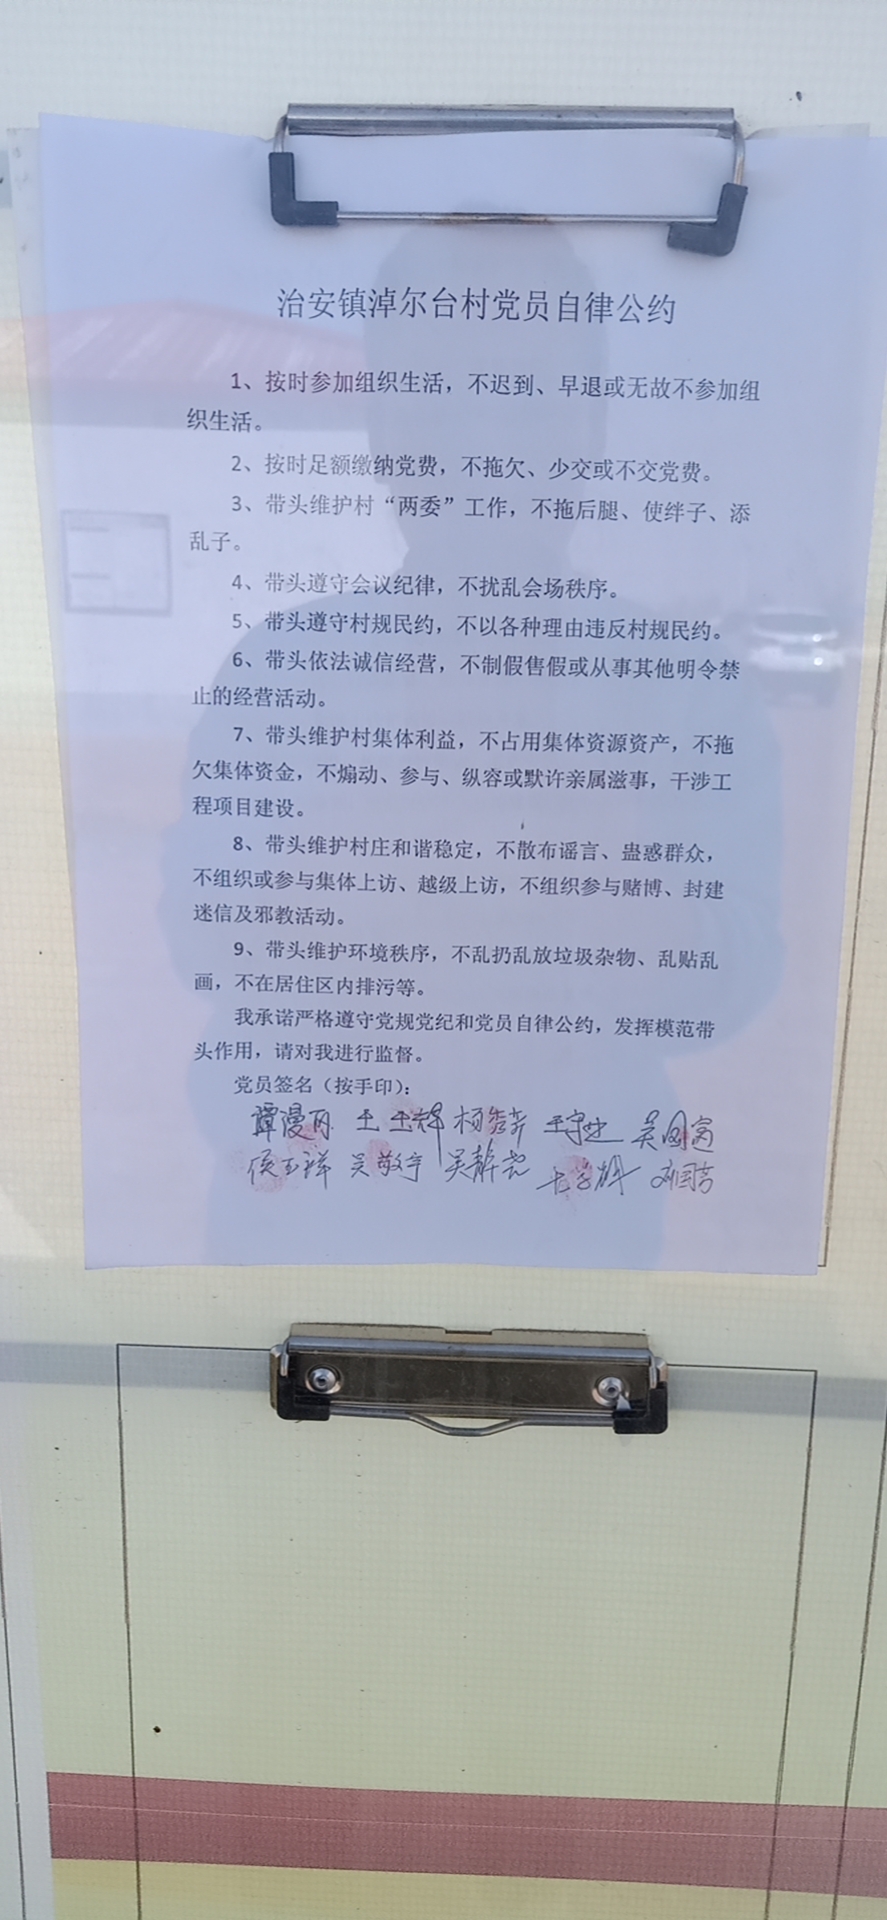 治安镇淖尔台村党员自律公约
1、按时参加组织生活，不迟到、早退或无故不参加组
织生活。
2、按时足额缴纳党费，不拖欠、少交或不交党费。
3、带头维护村“两委”工作，不拖后腿、使绊子、添
乱子。
4、带头遵守会议纪律，不扰乱会场秩序。
5、带头遵守村规民约，不以各种理由违反村规民约。
6、带头依法诚信经营，不制假售假或从事其他明令禁
止的经营活动。
7、带头维护村集体利益，不占用集体资源资产，不拖
欠集体资金，不煽动、参与、纵容或默许亲属滋事，干涉工
程项目建设。
8、带头维护村庄和谐稳定，不散布谣言、蛊惑群众，
不组织或参与集体上访、越级上访，不组织参与赌博、封建
迷信及邪教活动。
9、带头维护环境秩序，不乱扔乱放垃圾杂物、乱贴乱
画，不在居住区内排污等。
我承诺严格遵守党规党纪和党员自律公约，发挥模范带
头作用，请对我进行监督。
党员签名（按手印）：
吴国富
侯玉祥 吴敬宇 吴静尧